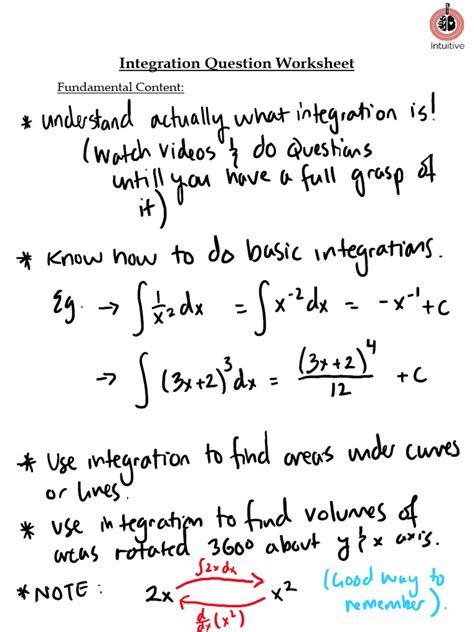 Intuitive
Integration Question Worksheet
Fundamental Content:
* understand actually what integration is!
(Watch videos & do Questions
untill you have a full grasp of
it)
* Know how to do basic integrations.
Eg. → ∫ 1/x² dx = ∫ x⁻² dx = -x⁻¹ + c
→ ∫ (3x+2)³ dx = (3x+2)⁴/12 + C
* Use integration to find areas under curves
or lines.
* Use integration to find volumes of
areas rotated 360° about y & x axis.
∫2x dx
* NOTE : 2x x² (Good way to
remember).
d/dx (x²)